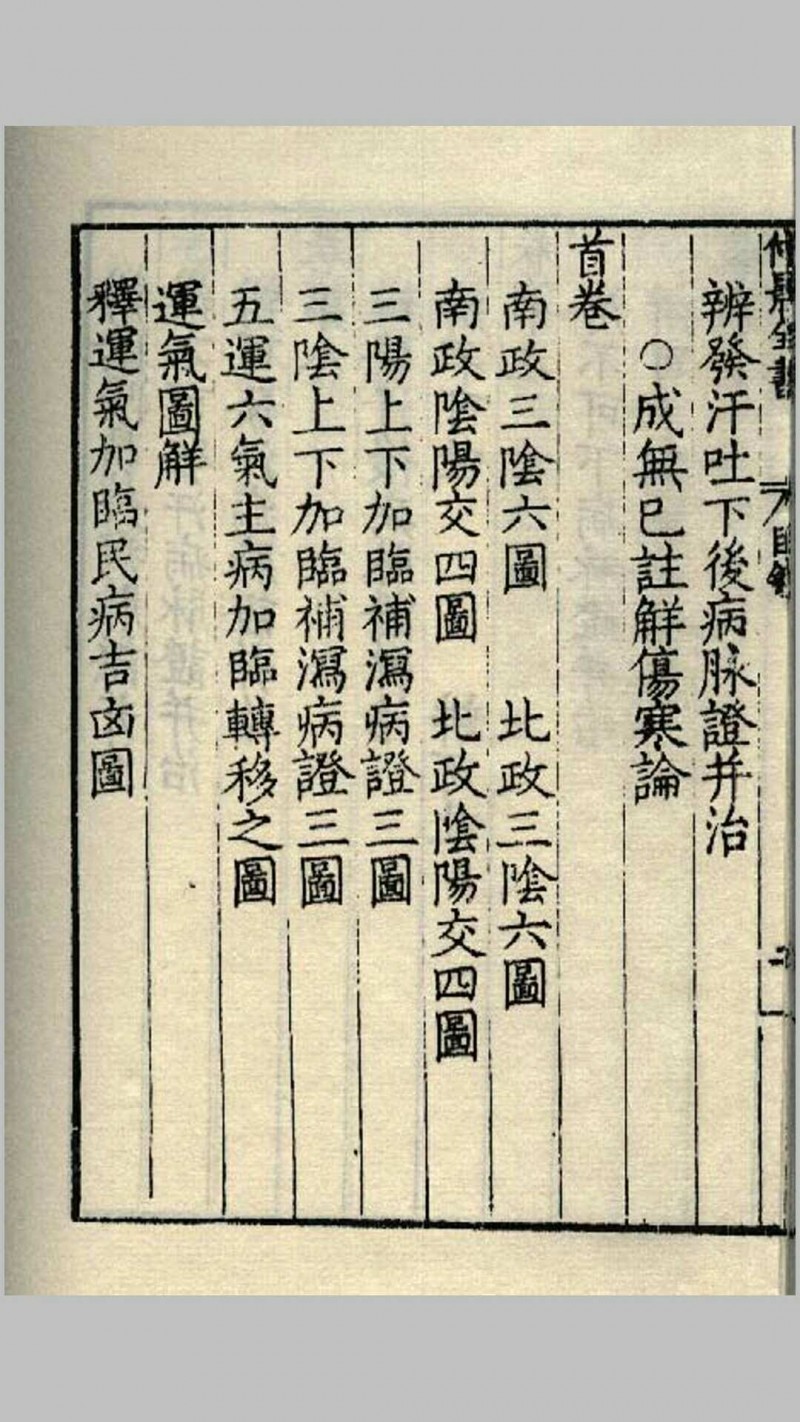 辨發汗吐下後病脉證并治
○成無巳註解傷寒論
首卷
南政三陰六圖 北政三陰六圖
南政陰陽交四圖 北政陰陽交四圖
三陽上下加臨補瀉病證三圖
三陰上下加臨補瀉病證三圖
五運六氣主病加臨轉移之圖
運氣圖解
釋運氣加臨民病吉凶圖